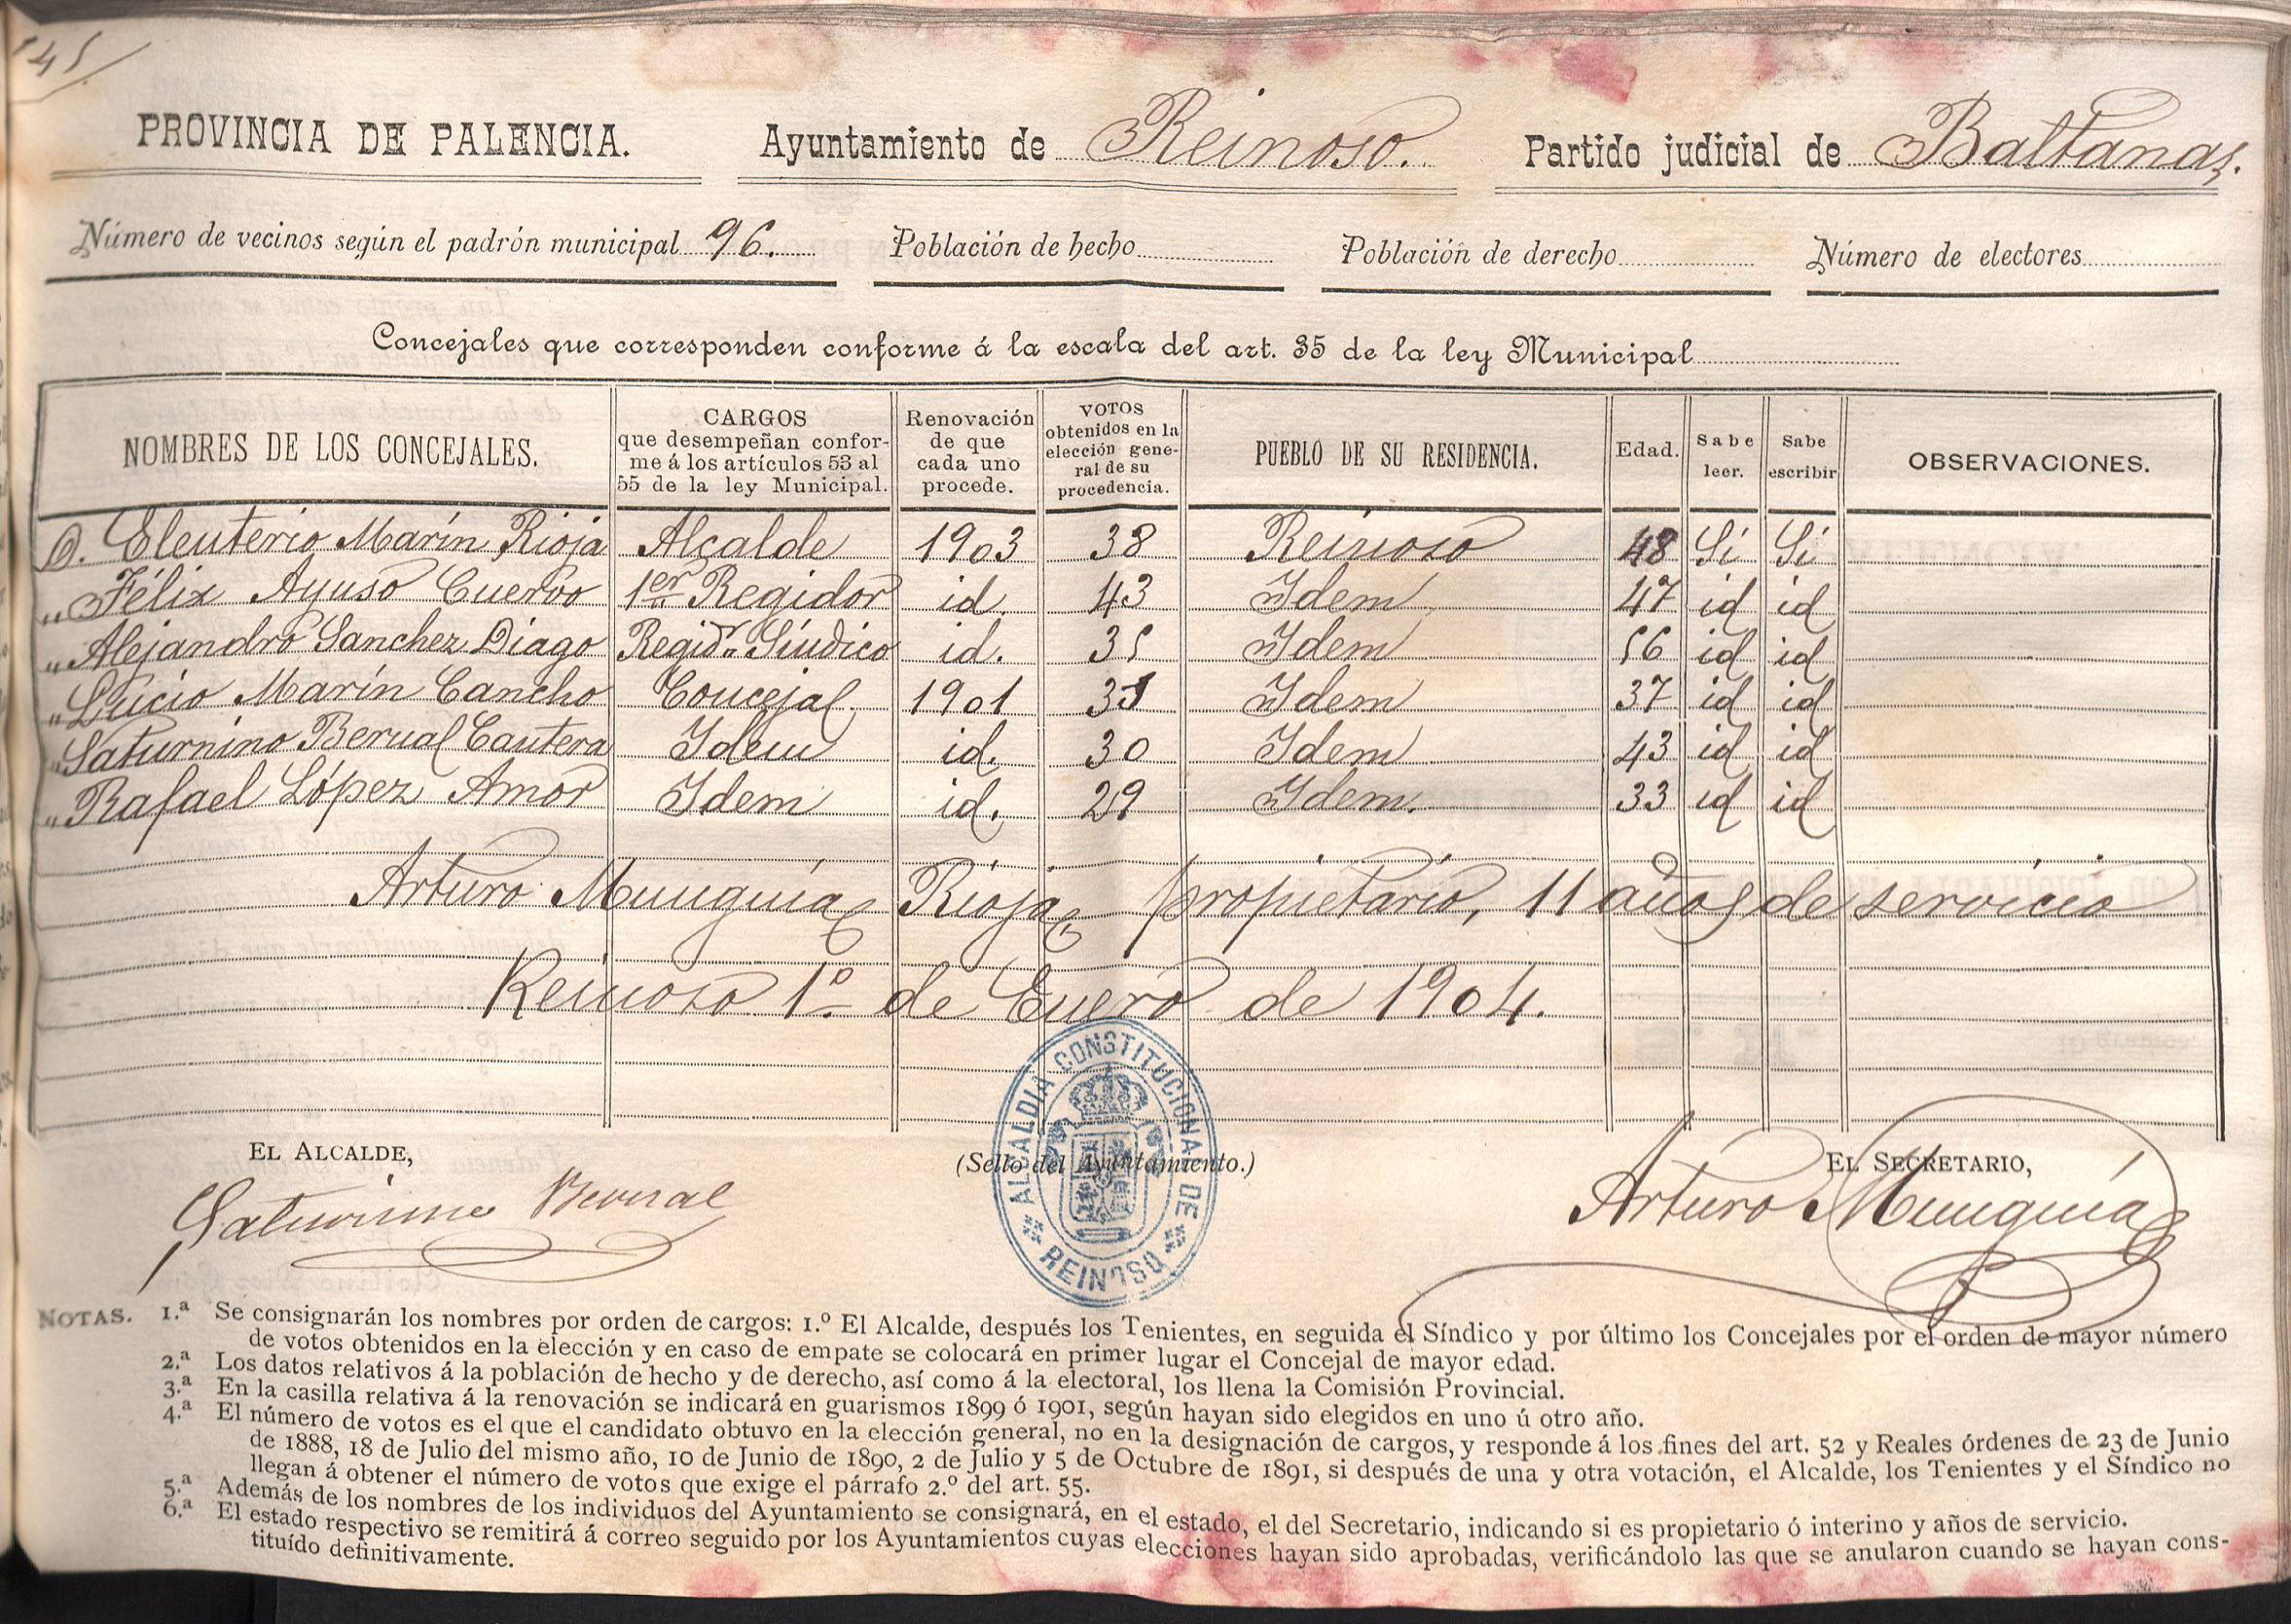 145
PROVINCIA DE PALENCIA. Ayuntamiento de Reinoso. Partido judicial de Baltanas.
Número de vecinos según el padrón municipal 96. Población de hecho Población de derecho Número de electores
Concejales que corresponden conforme á la escala del art. 35 de la ley Municipal
NOMBRES DE LOS CONCEJALES. CARGOS que desempeñan confor- me á los artículos 53 al 55 de la ley Municipal. Renovación de que cada uno procede. VOTOS obtenidos en la elección gene- ral de su procedencia. PUEBLO DE SU RESIDENCIA. Edad. Sabe leer. Sabe escribir OBSERVACIONES.
D. Eleuterio Marín Rioja Alcalde 1903 38 Reinoso 48 Sí Sí
„ Félix Ayuso Cuervo 1er Regidor id. 43 Idem 47 id id
„ Alejandro Sanchez Diago Regidr Síndico id. 35 Idem 56 id id
„ Lucio Marín Cancho Concejal 1901 Idem 37 id id
„ Saturnino Bernal Cantera Idem id. 30 Idem 43 id id
„ Rafael López Amor Idem id. 29 Idem. 33 id id
Arturo Munguía Rioja, propietario, 11 años de servicio
Reinoso 1º de Enero de 1904.
EL ALCALDE, (Sello del Ayuntamiento.) EL SECRETARIO,
Saturnino Bernal Arturo Munguía
ALCALDIA CONSTITUCIONAL DE REINOSO
NOTAS. 1.ª Se consignarán los nombres por orden de cargos: 1.º El Alcalde, después los Tenientes, en seguida el Síndico y por último los Concejales por el orden de mayor número
de votos obtenidos en la elección y en caso de empate se colocará en primer lugar el Concejal de mayor edad.
2.ª Los datos relativos á la población de hecho y de derecho, así como á la electoral, los llena la Comisión Provincial.
3.ª En la casilla relativa á la renovación se indicará en guarismos 1899 ó 1901, según hayan sido elegidos en uno ú otro año.
4.ª El número de votos es el que el candidato obtuvo en la elección general, no en la designación de cargos, y responde á los fines del art. 52 y Reales órdenes de 23 de Junio
de 1888, 18 de Julio del mismo año, 10 de Junio de 1890, 2 de Julio y 5 de Octubre de 1891, si después de una y otra votación, el Alcalde, los Tenientes y el Síndico no
llegan á obtener el número de votos que exige el párrafo 2.º del art. 55.
5.ª Además de los nombres de los individuos del Ayuntamiento se consignará, en el estado, el del Secretario, indicando si es propietario ó interino y años de servicio.
6.ª El estado respectivo se remitirá á correo seguido por los Ayuntamientos cuyas elecciones hayan sido aprobadas, verificándolo las que se anularon cuando se hayan cons-
tituído definitivamente.